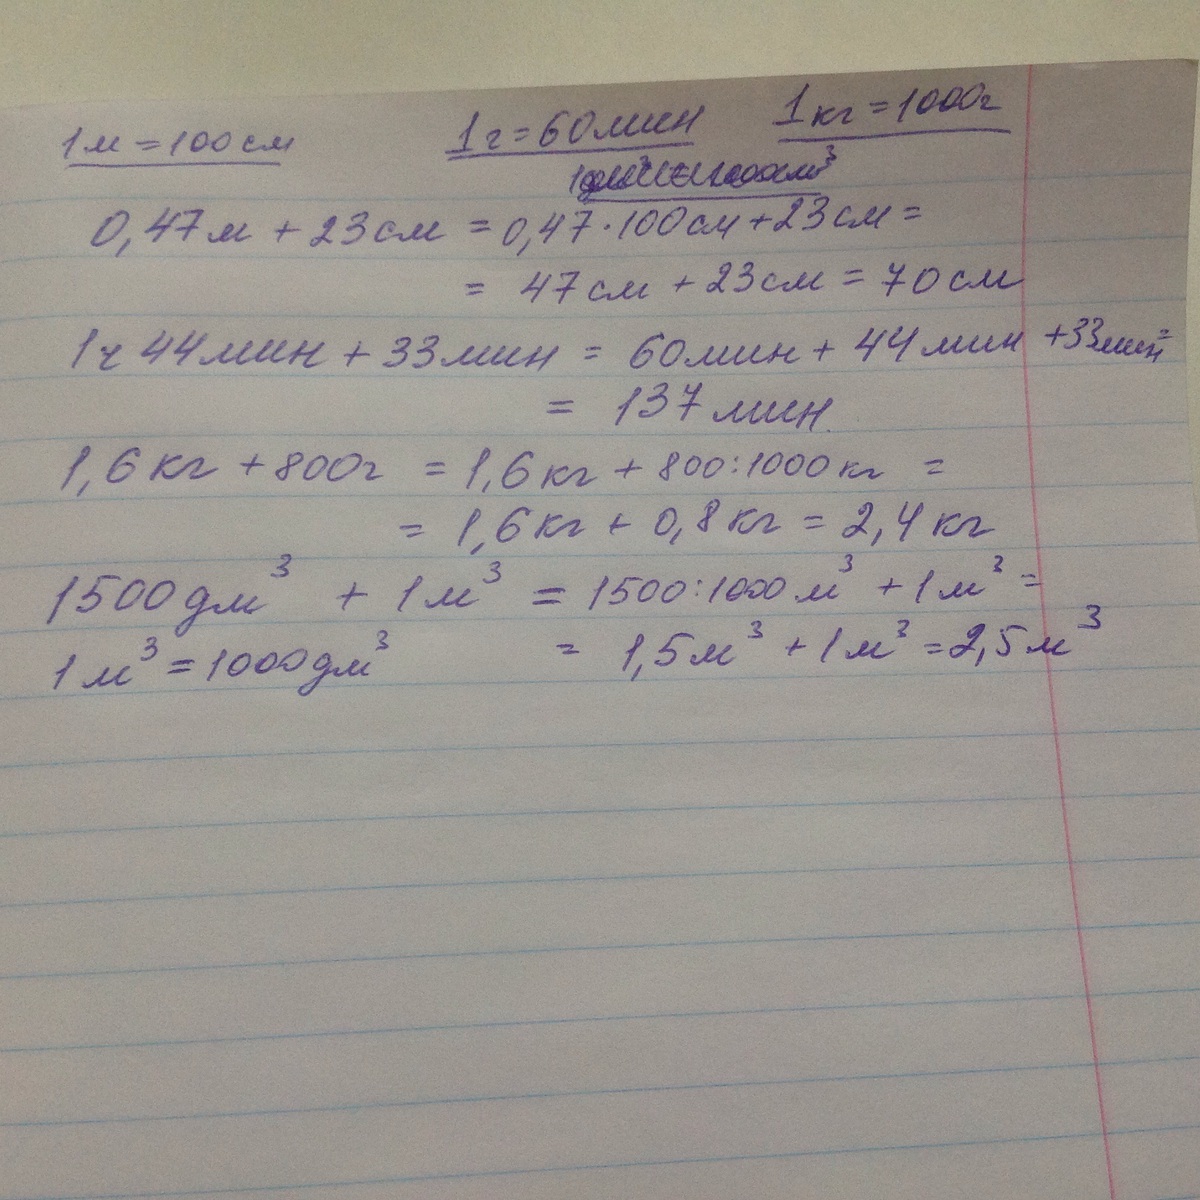 1м = 100 см 1г = 60 мин 1 кг = 1000г
0,47м + 23 см = 0,47·100 см + 23 см =
= 47 см + 23 см = 70 см
1ч 44 мин + 33 мин = 60 мин + 44 мин + 33 мин =
= 137 мин.
1,6 кг + 800г = 1,6 кг + 800:1000 кг =
= 1,6 кг + 0,8 кг = 2,4 кг
1500 дм³ + 1 м³ = 1500:1000 м³ + 1 м³ =
1 м³ = 1000 дм³ = 1,5 м³ + 1 м³ = 2,5 м³